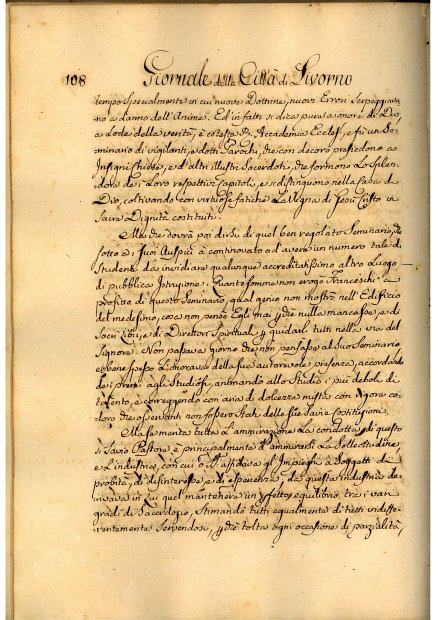 108 Giornale della Città di Livorno
tempo Specialmente in cui nuove Dottrine, nuovi Errori Serpeggiava=
no a danno dell'Anime. Ed in fatti si dica pure a onore di Dio,
a Lode della verità, è cotesta Accademia Eccles. e fù un Se=
minario di vigilanti, e dotti Parochi, che con decoro presiedono ad
Insigni Chiese, e d'altri illustri Sacerdoti, che formono Lo Splen=
dore de i Loro respettivi Capitoli, e si distinguono nella Casa di
Dio, coltivando con virtuose fatiche La Vigna di Gesù Cristo in
Sacra Dignità costituiti.
Ma che dovrà poi dirsi di quel ben regolato Seminario, che
sotto i Suoi Auspicj à continovato ad avere un numero tale di
Studenti da invidiare qualunque accreditatissimo altro Luogo
di pubblica Istruzione. Quante somme non erogò Franceschi a
profitto di questo Seminario, qual genio non mostrò nell'Edificio
del medesimo, cosa non pensò Egli mai che nulla mancasse, e di
Sacri Libri, e di Direttori Spirituali p guidarli tutti nella via del
Signore. Non passava giorno che non pensasse al Suo Seminario
e bene spesso L'onorava della sua autorevole presenza, accordando
de i premi agli Studiosi, animando allo Studio i più deboli di
talento, e correggendo con aria di dolcezza mista con rigore co=
loro che osservanti non fossero stati delle sue Savie Costituzioni.
Ma se merita tutta L'ammirazione La condotta di questo
si Savio Pastore, è principalmente d'ammirarsi La Sollecitudine
e L'industria, con cui si affidava gl'Impieghi a Soggetti di
probità, di disinteresse e di esperienza, da questa industria de=
rivava in Lui quel mantenere un perfetto equilibrio tra i vari
gradi di Sacerdozio, Stimando tutti egualmente di tutti indiffe=
rentemente Servendosi, p che tolta ogni occasione di parzialità,